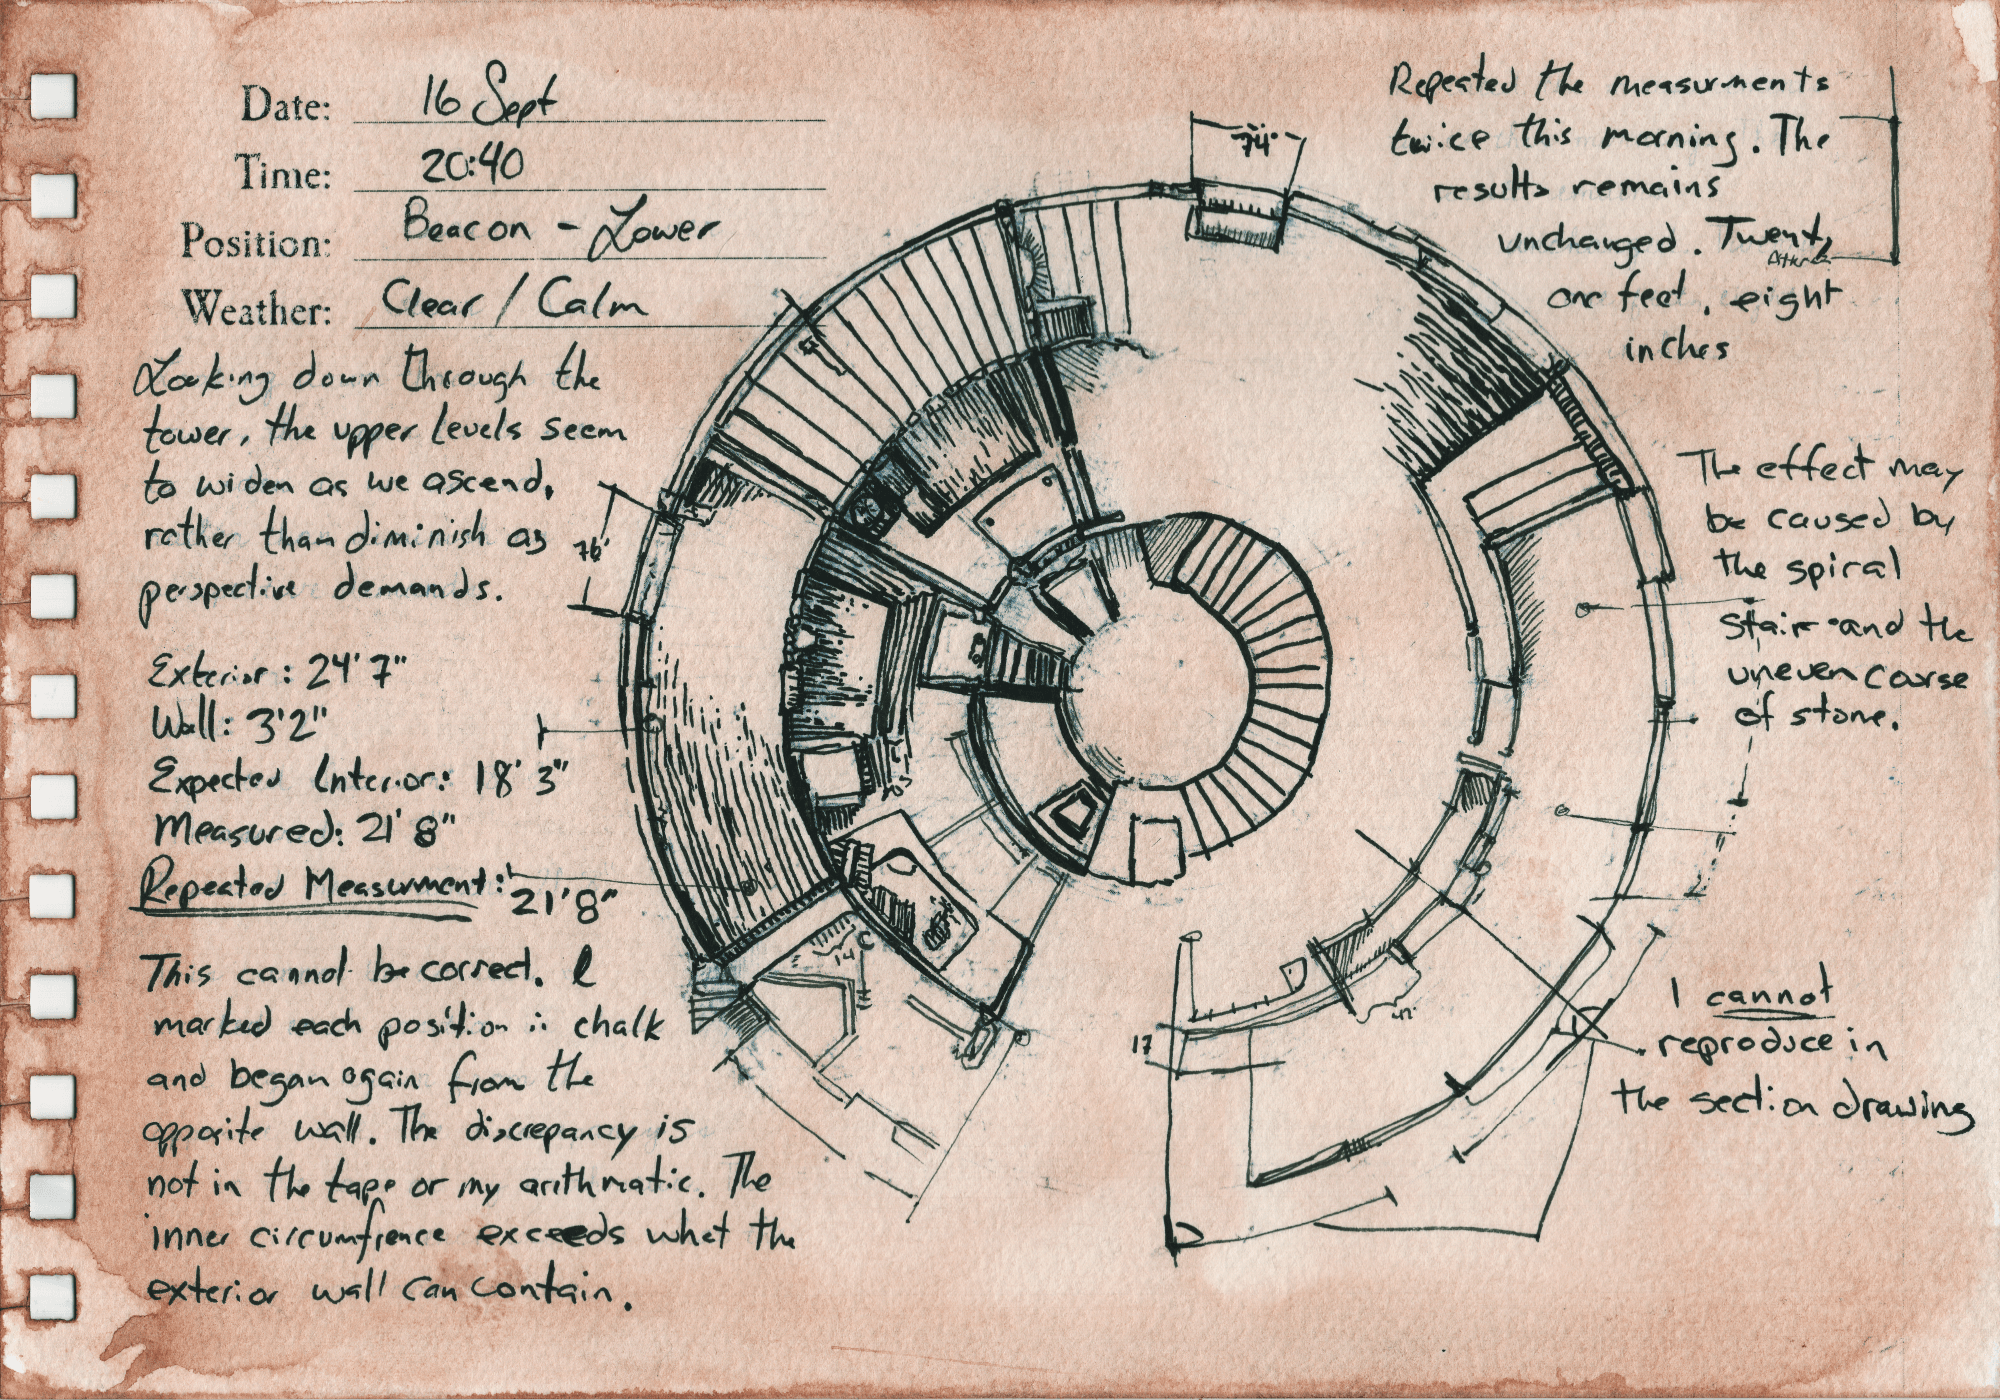 Date: 16 Sept
Time: 20:40
Position: Beacon - Lower
Weather: Clear / Calm
Looking down through the
tower, the upper levels seem
to widen as we ascend,
rather than diminish as
perspective demands.
Exterior: 24' 7"
Wall: 3'2"
Expected Interior: 18' 3"
Measured: 21' 8"
Repeated Measurment: 21'8"
This cannot be correct. I
marked each position in chalk
and began again from the
opposite wall. The discrepancy is
not in the tape or my arithmatic. The
inner circumfrence exceeds what the
exterior wall can contain.
74"
76'
14
17
Repeated the measurments
twice this morning. The
results remains
unchanged. Twenty
one feet, eight
inches
The effect may
be caused by
the spiral
stair and the
uneven course
of stone.
I cannot
reproduce in
the section drawing